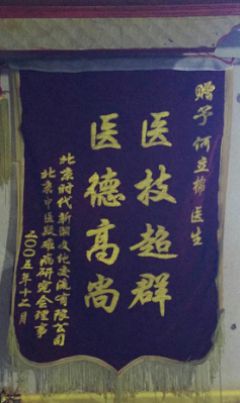 赠予 何立椿 医生
医技超群
医德高尚
北京时代新闻文化交流有限公司
北京中医疑难病研究会理事
二00五年十二月